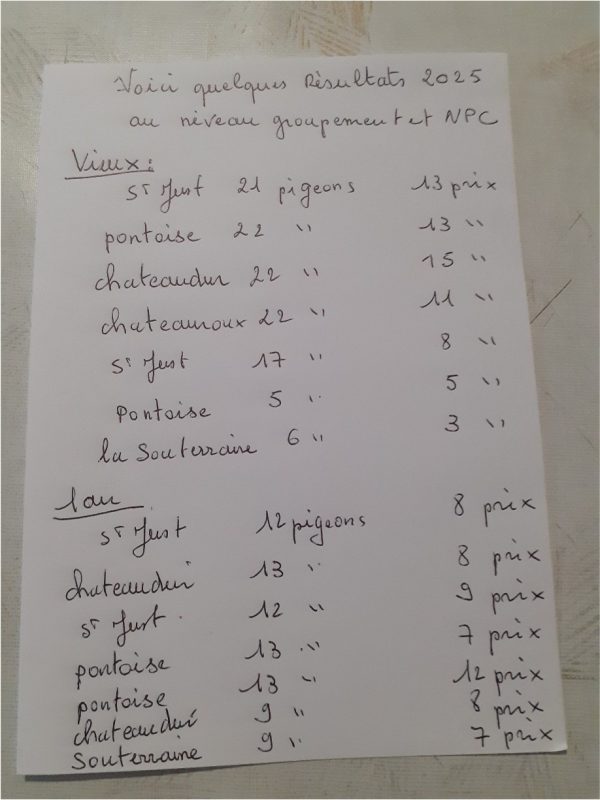 Voici quelques Résultats 2025
au niveau groupement et NPC
Vieux:
St Just 21 pigeons 13 prix
pontoise 22 " 13 "
chateaudun 22 " 15 "
chateauroux 22 " 11 "
St Just 17 " 8 "
Pontoise 5 " 5 "
la Souterraine 6 " 3 "
1 an
St Just 12 pigeons 8 prix
chateaudun 13 " 8 prix
St Just 12 " 9 prix
pontoise 13 " 7 prix
pontoise 13 " 12 prix
chateaudun 9 " 8 prix
Souterraine 9 " 7 prix